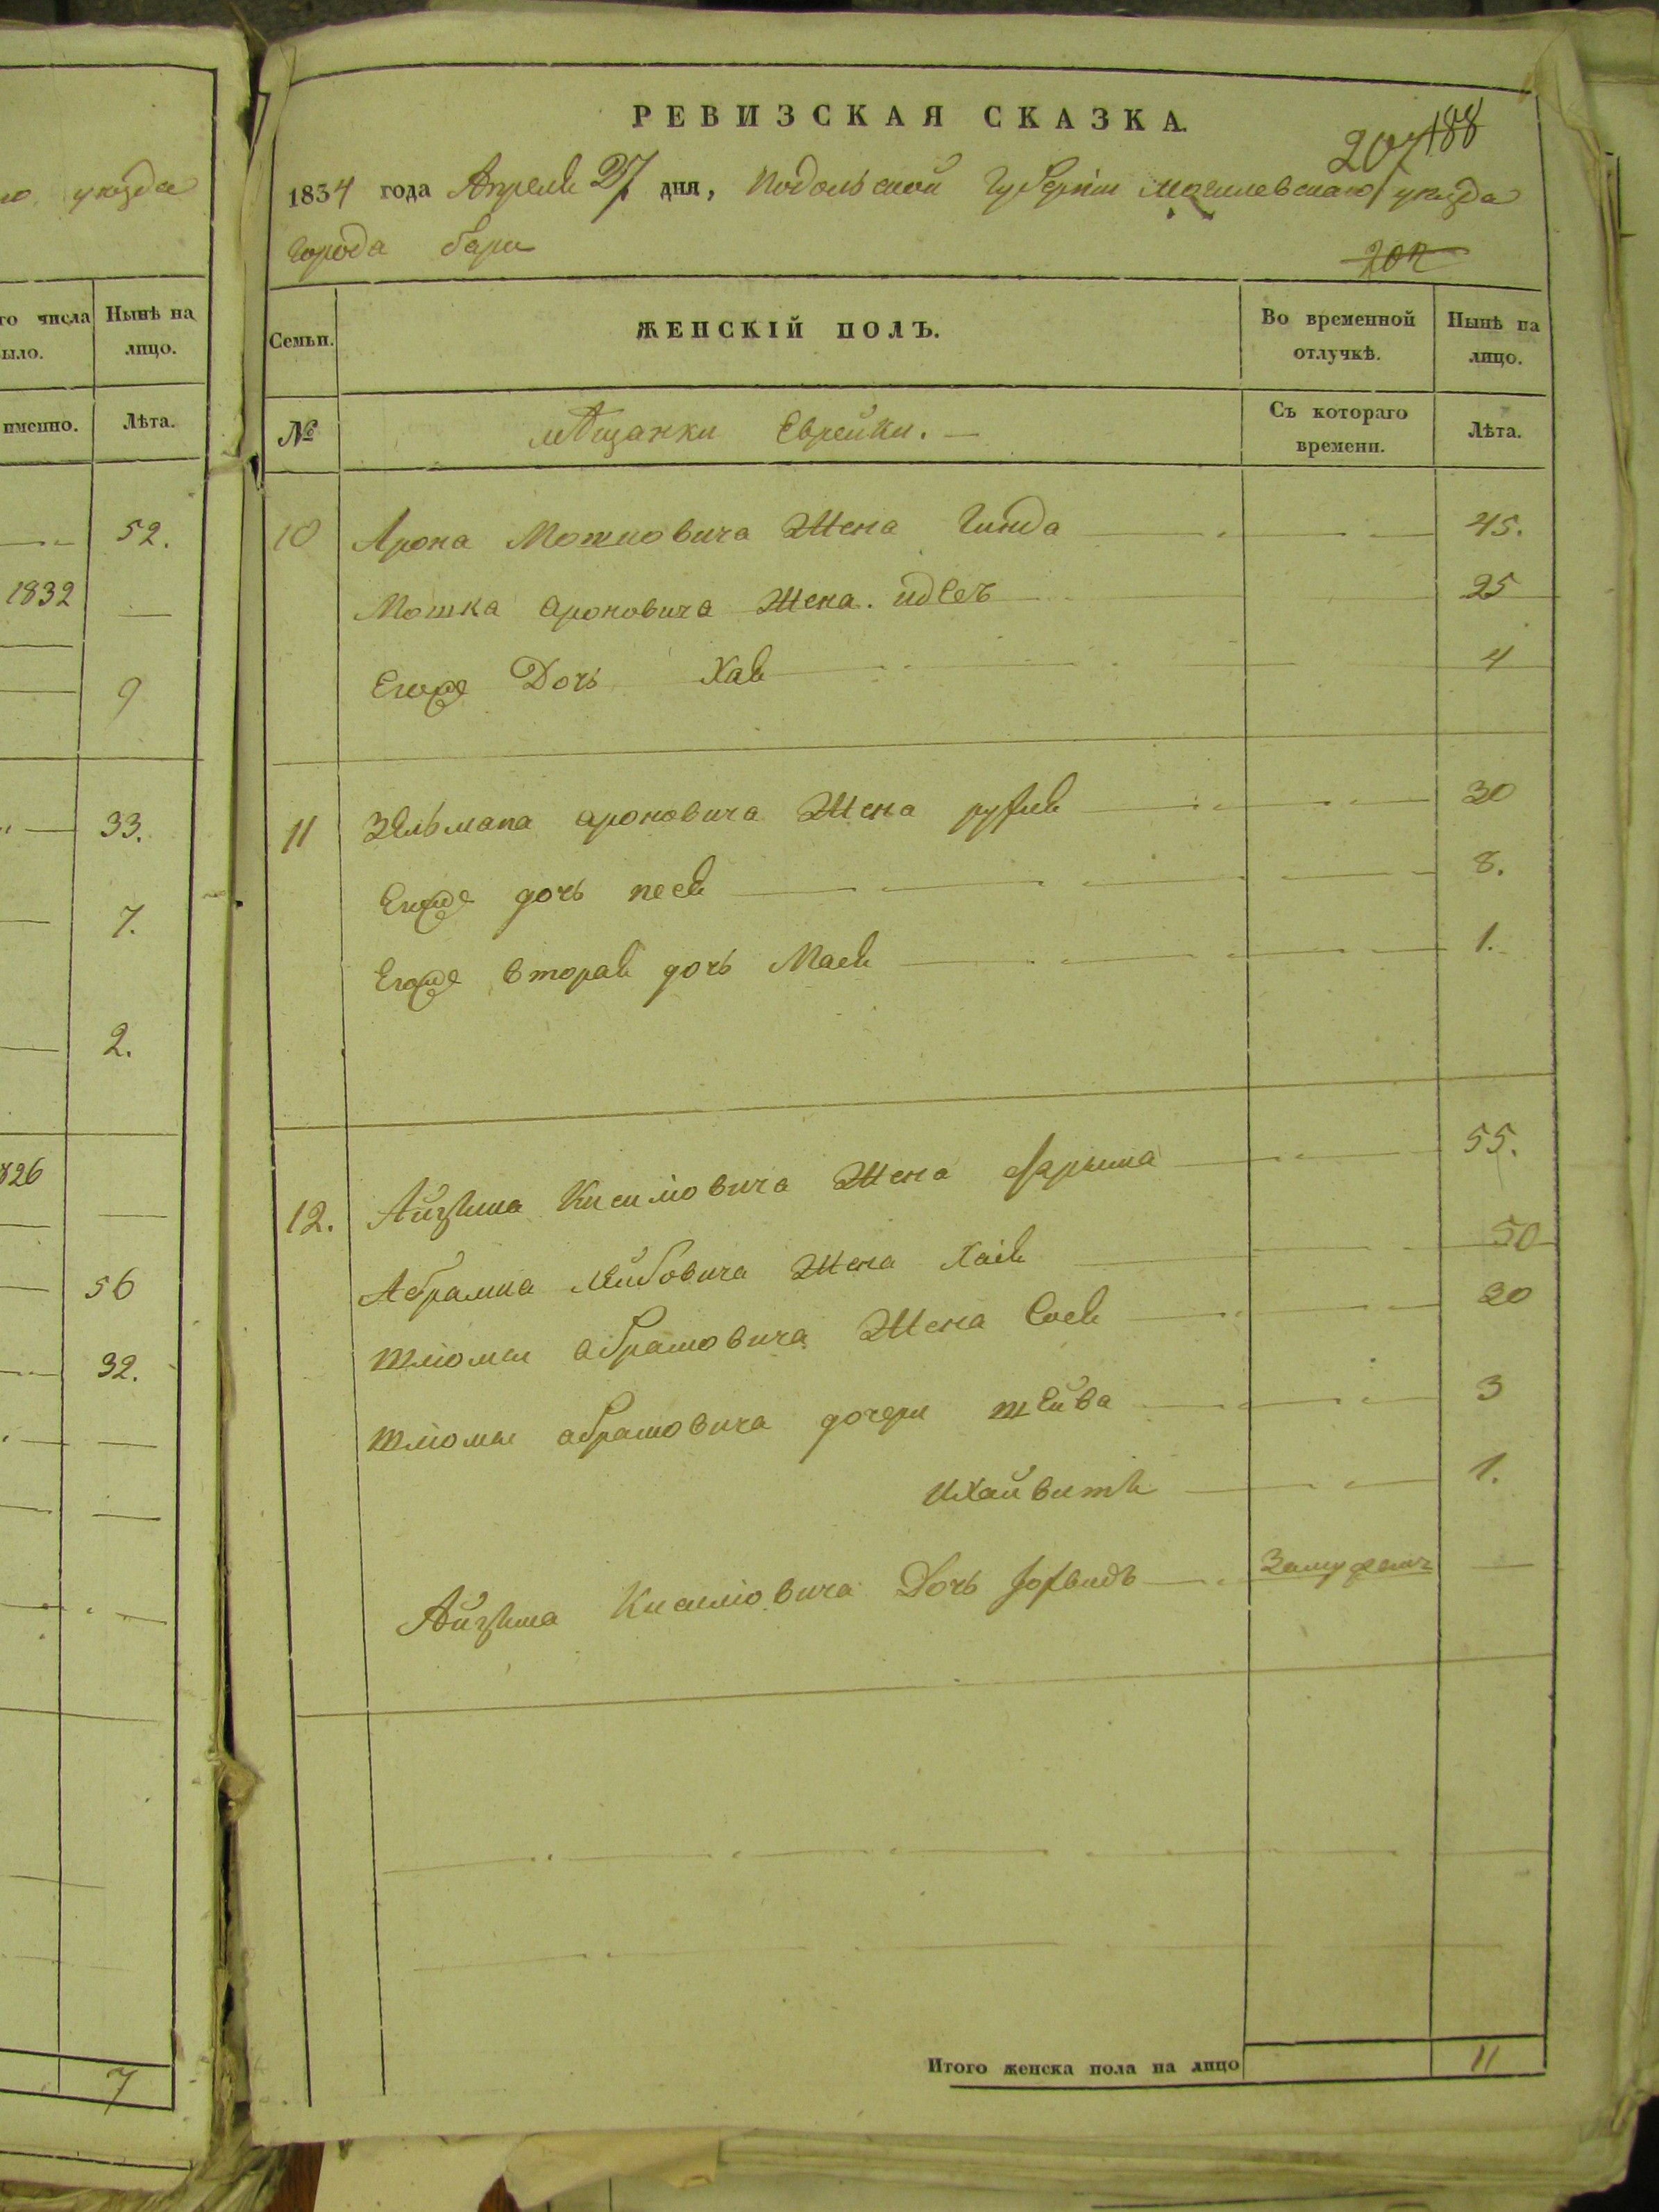 го уѣзда
го числа
Нынѣ на
ыло.
лицо.
именно.
Лѣта.
52.
1832
9
33.
7.
2.
826
56
32.
7
РЕВИЗСКАЯ СКАЗКА.
207 188
1834 года Апреля 27 дня, Подольской Губерніи Могилевскаго уѣзда
города Бара
202
Семьи.
ЖЕНСКІЙ ПОЛЪ.
Во временной отлучкѣ.
Нынѣ на лицо.
№
Мѣщанки Еврейки. —
Съ котораго времени.
Лѣта.
10 Арона Мошковича Жена Гинда 45.
Мошка Ароновича Жена. Идесъ 25
Егоже Дочь Хая 4
11 Зельмана Ароновича Жена Рухля 30
Егоже дочь Песя 8.
Егоже вторая дочь Мася 1.
12. Айзика Кисилиовича Жена 55.
Абрамка Лейбовича Жена Хаія 50
Шліомы Абрамовича Жена Сося 30
Шліомы Абрамовича дочери Шейва 3
1.
Кисилиовича Дочь Замужемъ —
Итого женска пола на лицо 11